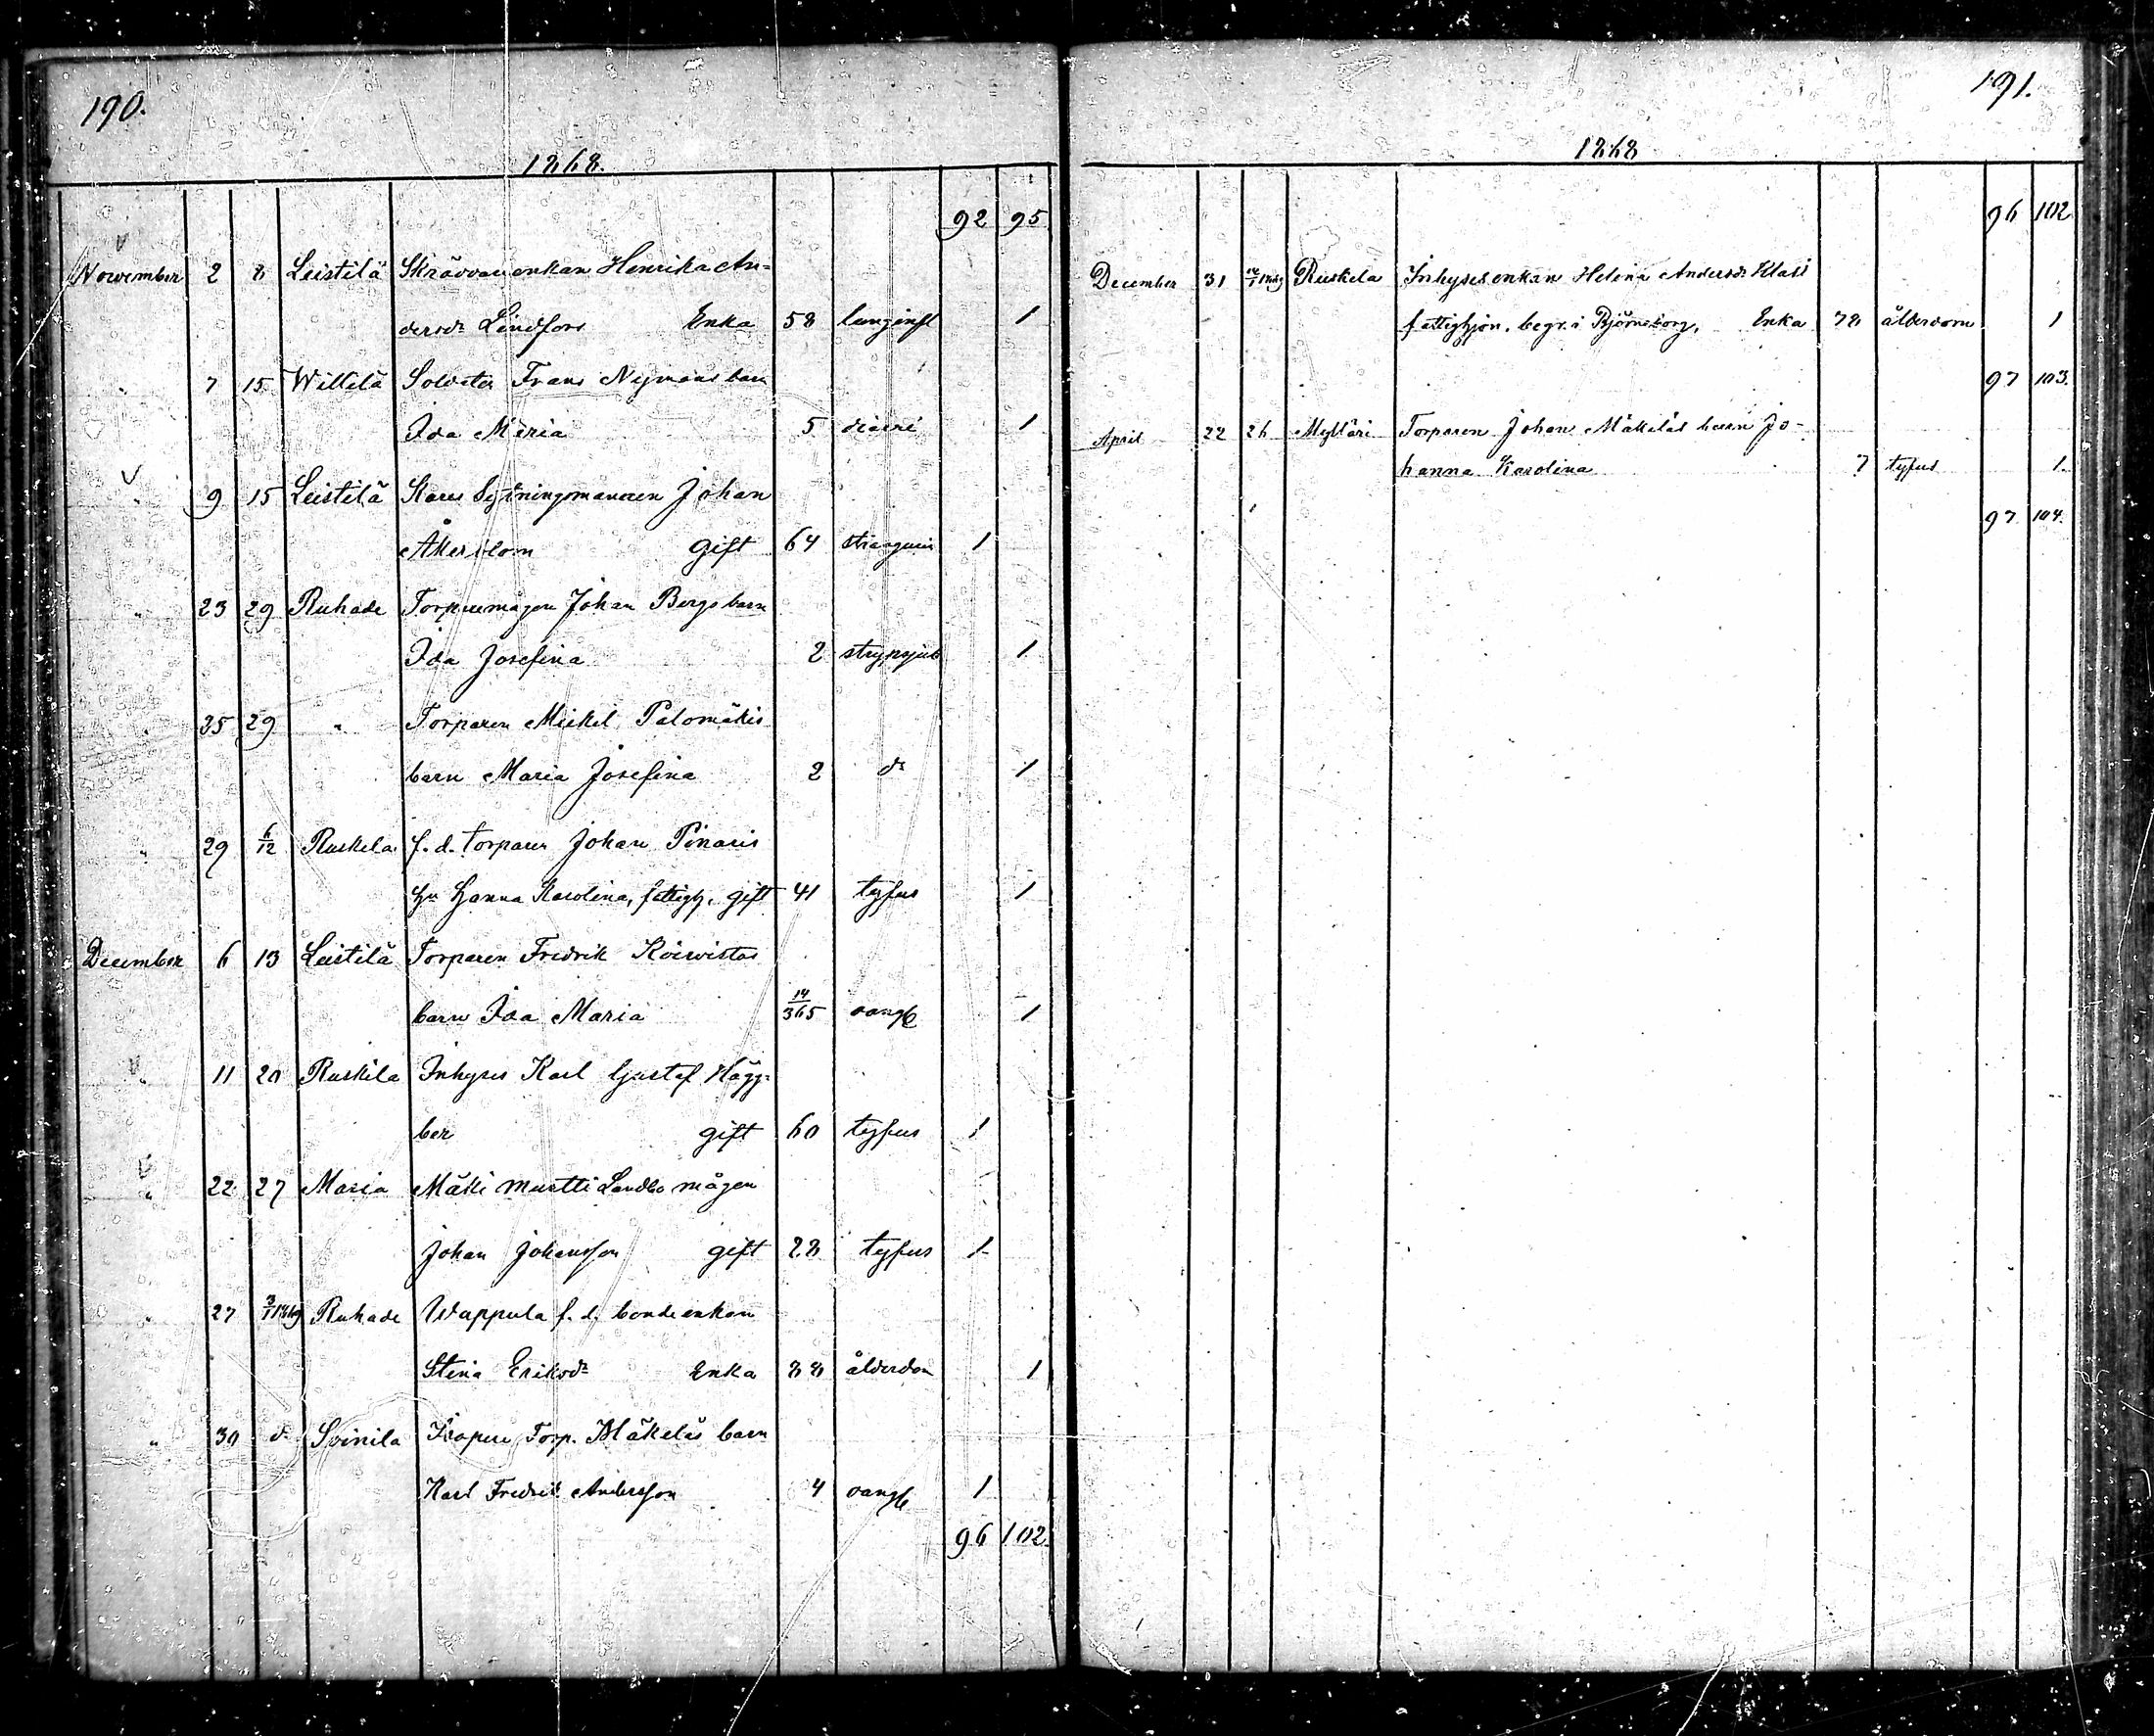 190.
1868.
92 95
November 2 8 Leistilä Skräddarenkan Henrika An-
dersdr Lindfors Enka 58 lunginfl 1
" 7 15 Wittilä Soldaten Frans Nymans barn
Ida Maria 5 diarré 1
" 9 15 Leistilä Kares Sytningsmannen Johan
Åkerblom gift 64 1
" 23 29 Ruhade Torparemågen Johan Bergs barn
Ida Josefina 2 strypsjuk 1
" 25 29 " Torparen Mickel Palomäkis
barn Maria Josefina 2 do 1
" 29 6/12 Ruskela f. d. torparen Johan Pinaris
hu Hanna Karolina, fattigh. gift 41 tyfus 1
December 6 13 Leistilä Torparen Fredrik Koivistos
barn Ida Maria 14/365 oangb 1
" 11 20 Ruskila Inhyses Karl Gustaf Hägg-
ber gift 60 tyfus 1
" 22 27 Maria Mäki Murtti Landbo mågen
Johan Johansson gift 28 tyfus 1
" 27 3/1 1869 Ruhade Wappula f. d. bonde enkan
Stina Eriksdr Enka 88 ålderdom 1
" 30 do Soinila Torp. Mäkeläs barn
Karl Fredrik Andersson 4 oangb 1
96 102.
191.
1868
96 102
December 31 1869 Ruskela Inhysesenkan Helena Andersdr Klasi
fattighjon. begr. i Björneborg, Enka 78 ålderdom 1
97 103.
April 22 26 Mylläri Torparen Johan Mäkeläs barn Jo-
hanna Karolina 7 tyfus 1
97 104.